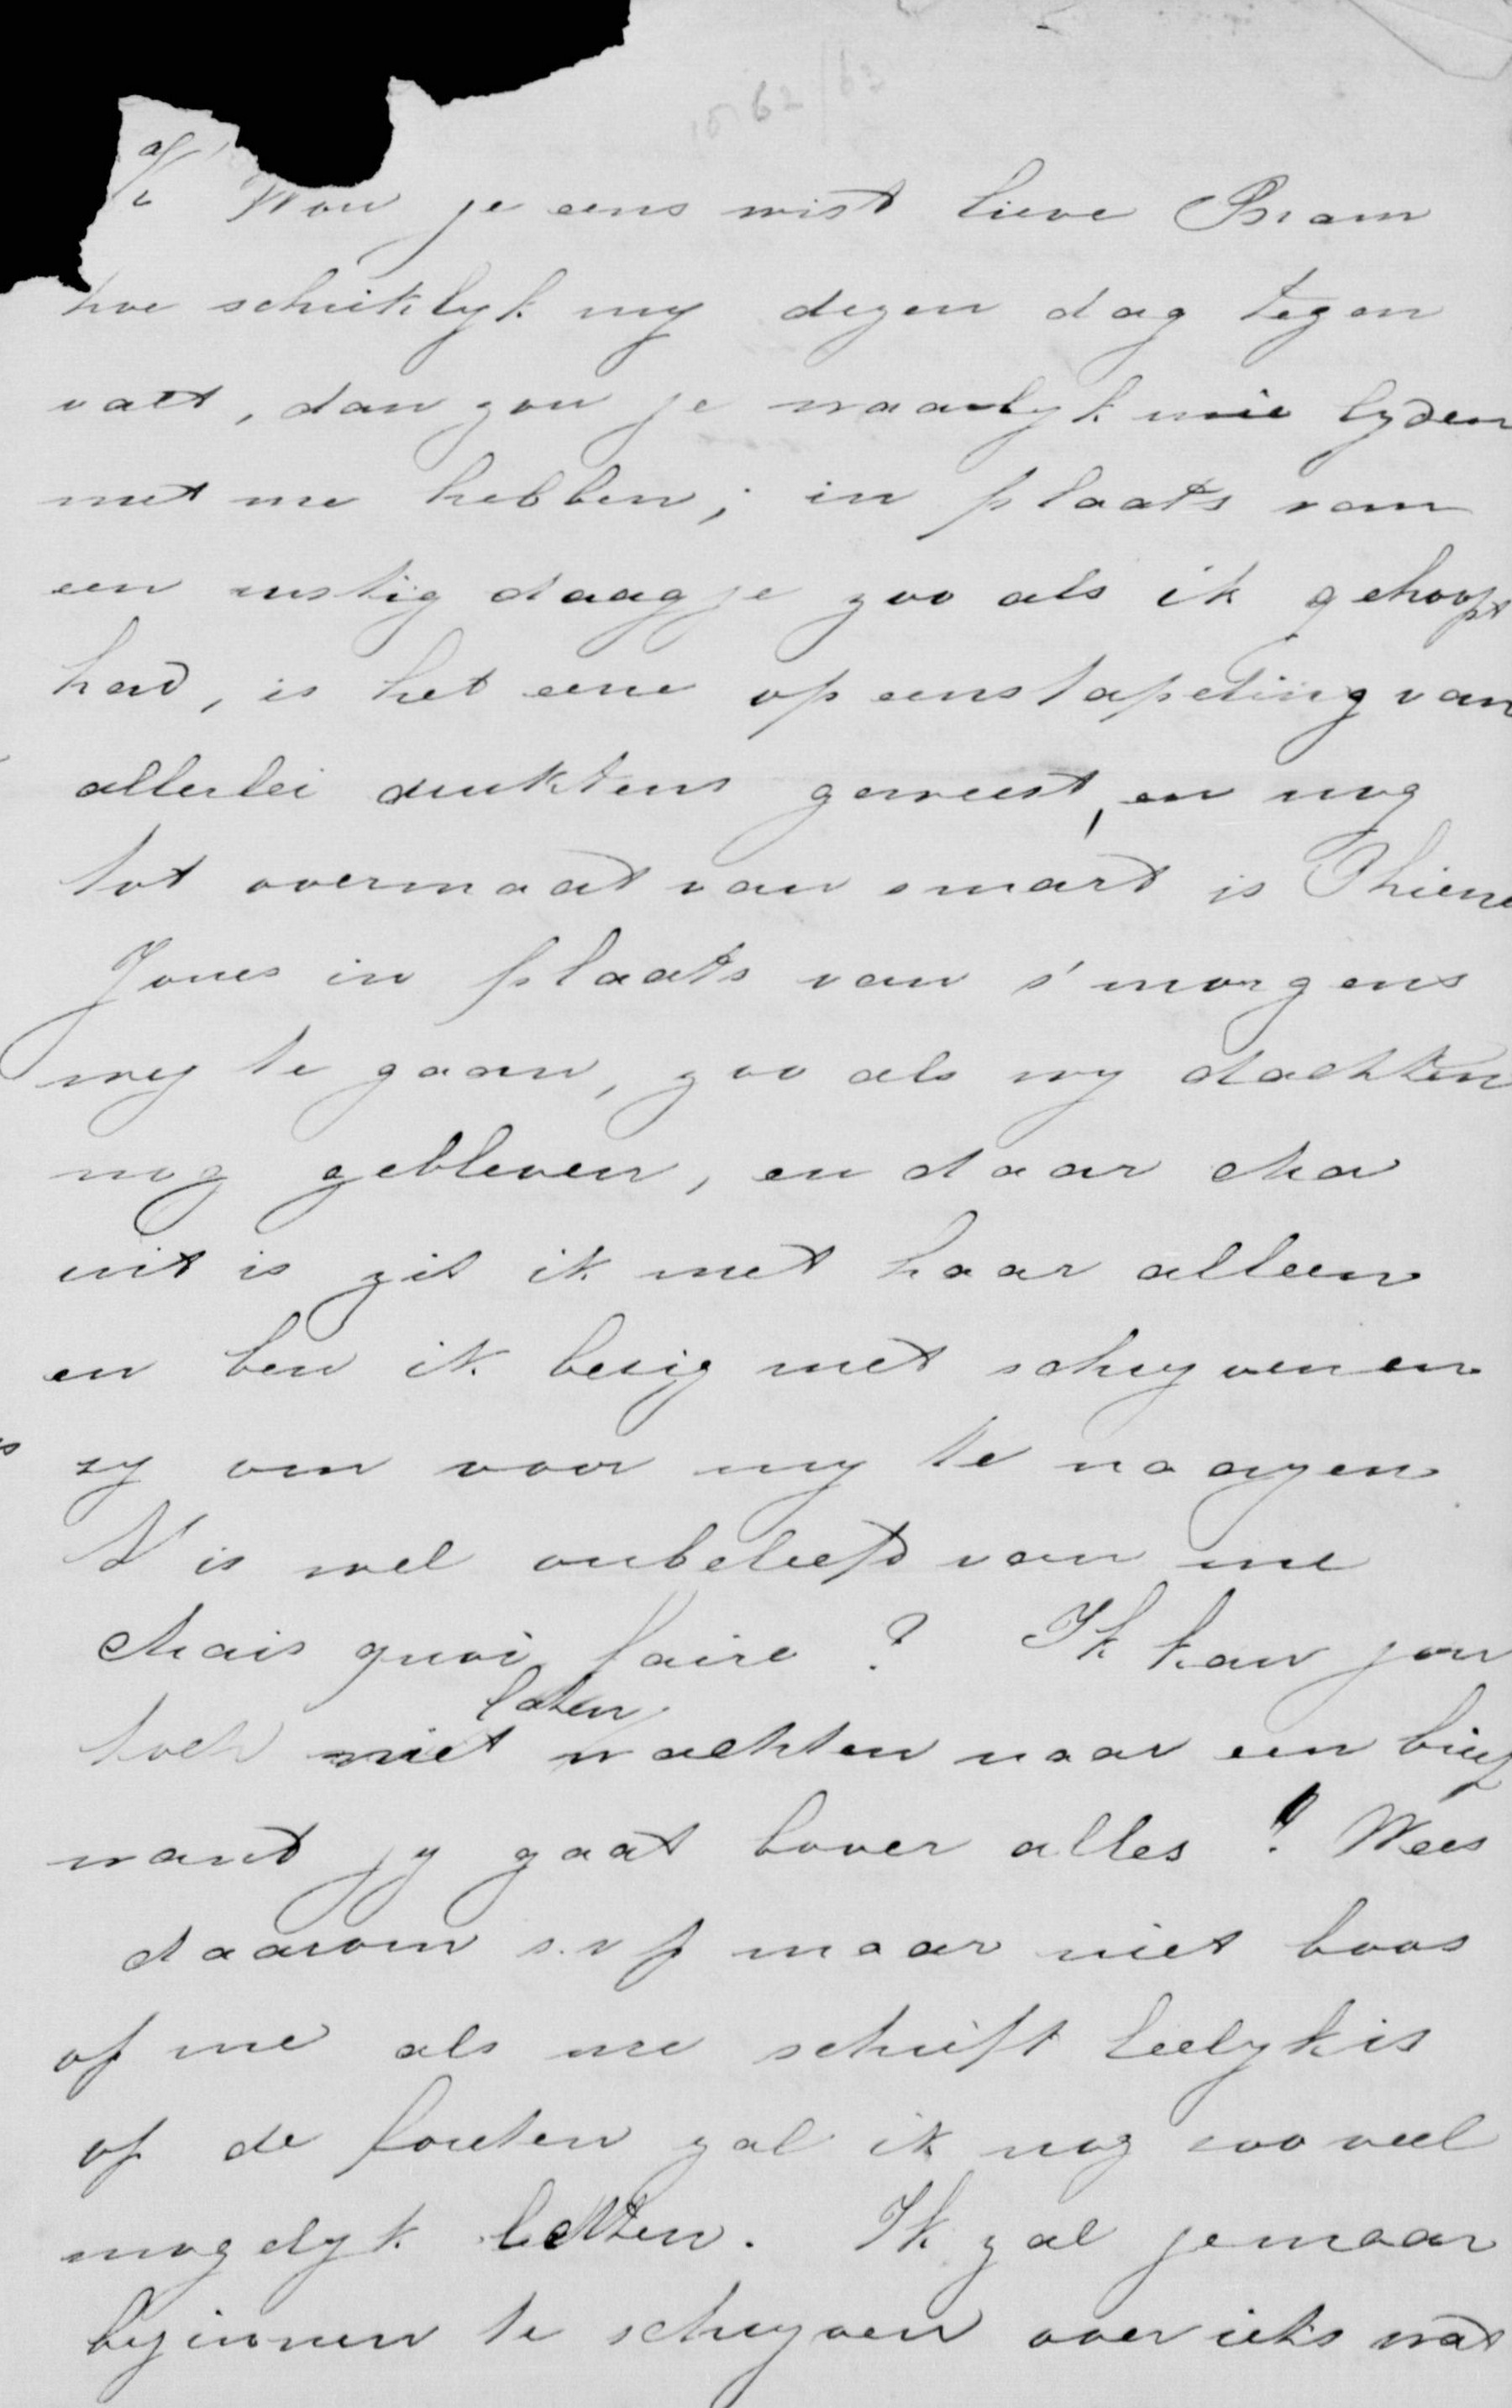 1862/63
af
Wou je eens wist lieve Bram
hoe schriklyk my dezen dag tegen
valt, dan zou je waarlyk mee lyden
met me hebben; in plaats van
een rustig daagje zoo als ik gehoopt
had, is het eene op eenstapeling van
allerlei druktens geweest, en nog
tot overmaat van smart is Thiene
Jones in plaats van s'morgens
weg te gaan, zoo als wy dachten
nog gebleven, en daar Ma
uit is zit ik met haar alleen
en ben ik bezig met schryven en
zy om voor my te naayen
't is wel onbeleefd van me
Mais quoi faire? Ik kan jou
laten
toch niet wachten naar een brief
want jy gaat boven alles! Wees
daarom s.v.p maar niet boos
op me als me schrift leelyk is
op de fouten zal ik nog zoo veel
mogelyk letten. Ik zal je maar
beginnen te schryven over iets wat